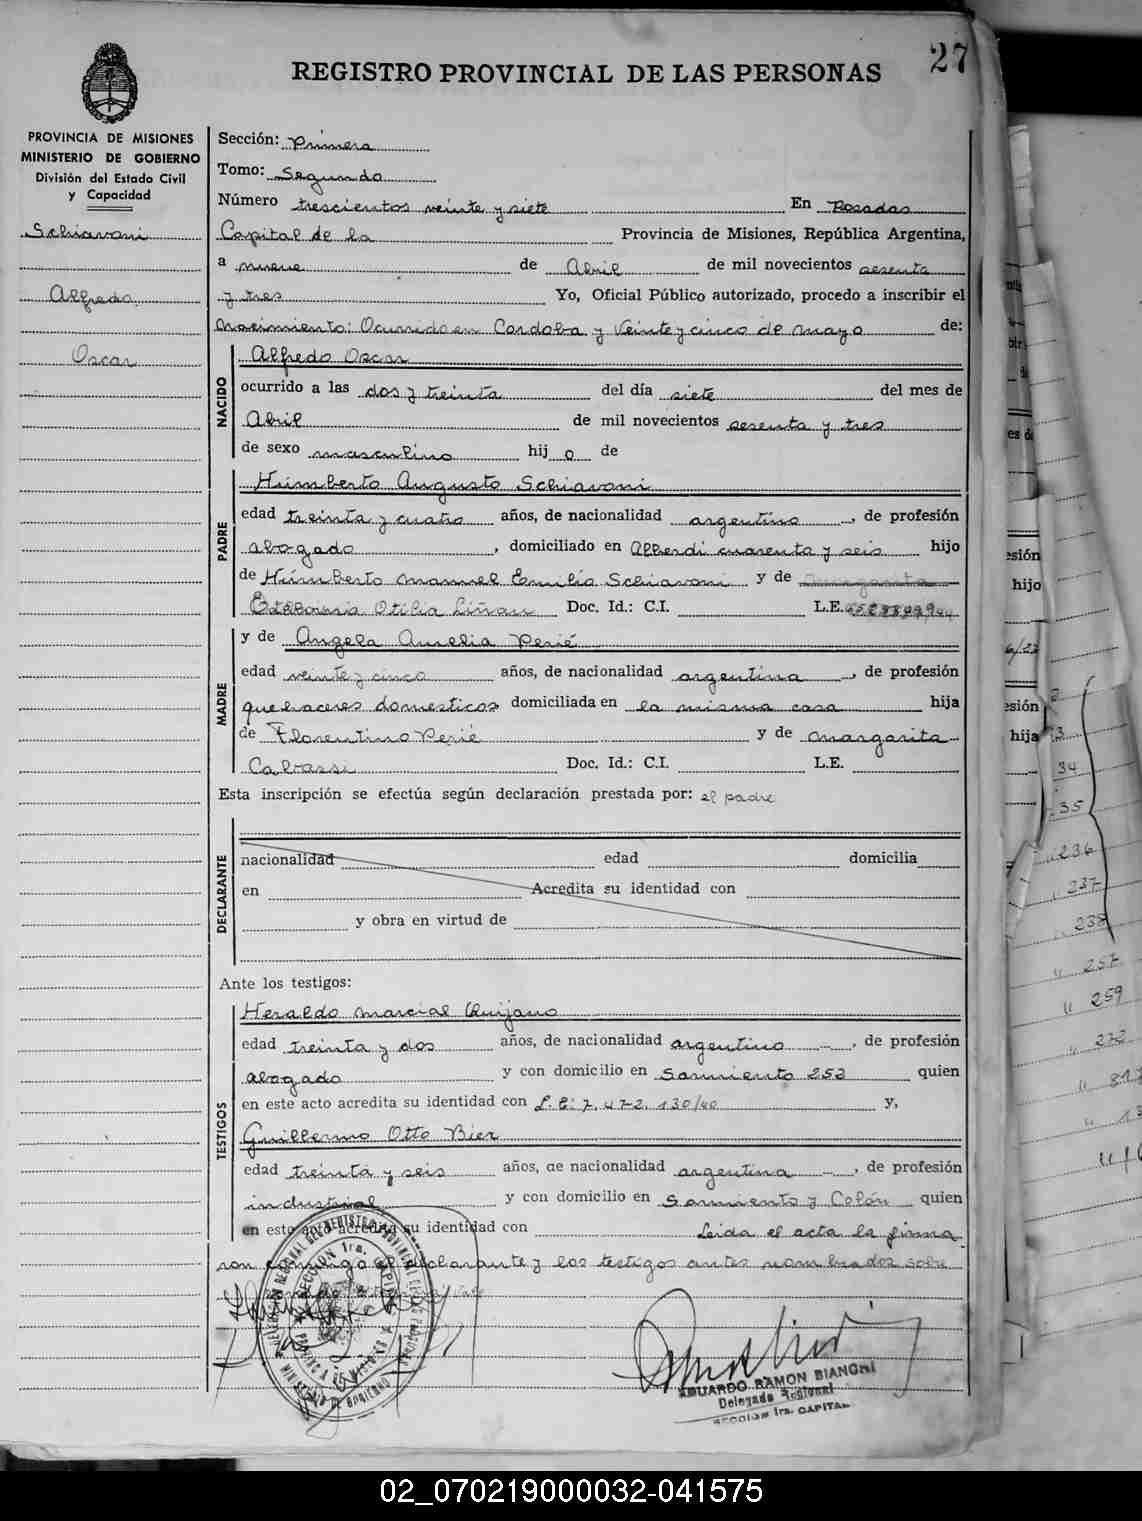 27
REGISTRO PROVINCIAL DE LAS PERSONAS
PROVINCIA DE MISIONES
MINISTERIO DE GOBIERNO
División del Estado Civil
y Capacidad
Schiavoni
Alfredo
Oscar
Sección: Primera
Tomo: Segundo
Número trescientos veinte y siete En Posadas
Capital de la Provincia de Misiones, República Argentina,
a nueve de Abril de mil novecientos sesenta
y tres Yo, Oficial Público autorizado, procedo a inscribir el
nacimiento: Ocurrido en Cordoba y Veinte y cinco de mayo de:
NACIDO
Alfredo Oscar
ocurrido a las dos y treinta del día siete del mes de
Abril de mil novecientos sesenta y tres
de sexo masculino hij o de
PADRE
Humberto Augusto Schiavoni
edad treinta y cuatro años, de nacionalidad argentino, de profesión
abogado, domiciliado en Alberdi cuarenta y seis hijo
de Humberto Manuel Emilio Schiavoni y de
Otilia Liñan Doc. Id.: C.I. L.E.
MADRE
y de Angela Aurelia Perié
edad veinte y cinco años, de nacionalidad argentina, de profesión
quehaceres domesticos domiciliada en la misma casa hija
de Florentino Perié y de Margarita
Cabassi Doc. Id.: C.I. L.E.
Esta inscripción se efectúa según declaración prestada por: el padre
DECLARANTE
nacionalidad edad domicilia
en Acredita su identidad con
y obra en virtud de
Ante los testigos:
TESTIGOS
Heraldo Marcial Quijano
edad treinta y dos años, de nacionalidad argentino, de profesión
abogado y con domicilio en Sarmiento 253 quien
en este acto acredita su identidad con L.E: 7.472.130/40 y,
Guillermo Otto Bier
edad treinta y seis años, de nacionalidad argentina, de profesión
industrial y con domicilio en Sarmiento y Colón quien
en este acto acredita su identidad con Leida el acta la firma
ron conmigo el declarante y los testigos antes nombrados sobre
EDUARDO RAMON BIANCHI
Delegado Regional
SECCION 1ra. CAPITAL
esión
hijo
esión
hija
34
35
236
237
238
257
259
02_070219000032-041575